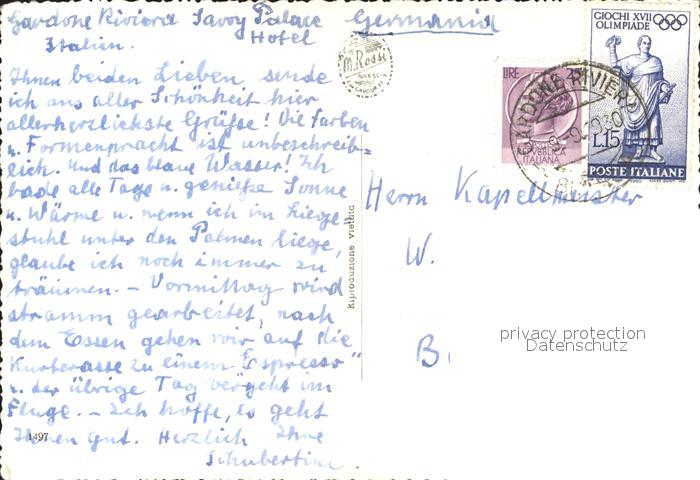 Gardone Riviera Savoy Palace
Hotel
Italien.
Germania
Ihnen beiden Lieben sende
ich aus aller Schönheit hier
allerherzlichste Grüße! Die Farben
u. Formenpracht ist unbeschreib=
lich. Und das blaue Wasser! Ich
bade alle Tage u. genieße Sonne
u. Wärme u. wenn ich im Liege-
stuhl unter den Palmen liege,
glaube ich noch immer zu
träumen. – Vormittag wird
stramm gearbeitet, nach
dem Essen gehen wir auf die
Kurterasse zu einem "Espresso"
u. der übrige Tag vergeht im
Fluge. – Ich hoffe, es geht
Ihnen gut. Herzlich Ihre
Schubertine.
1497
M. Rossi
BRESCIA
Riproduzione vietata
LIRE
REPUBBLICA
ITALIANA
GIOCHI XVII
OLIMPIADE
L.15
POSTE ITALIANE
GARDONE RIVIERA
Herrn Kapellmeister
W.
B
privacy protection
Datenschutz